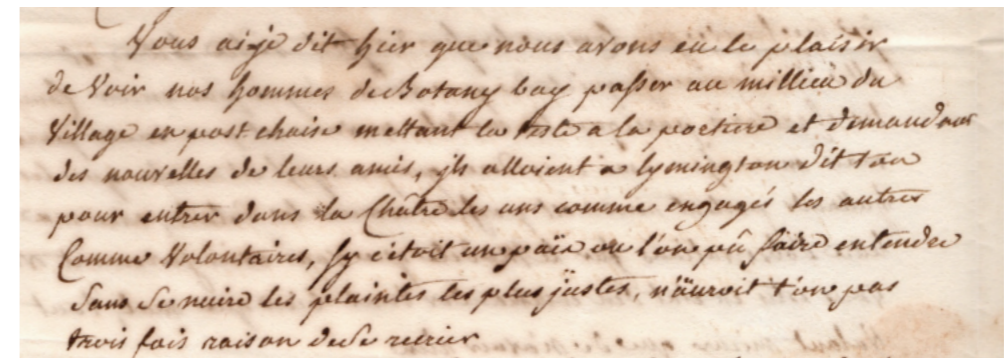 Vous aije dit hier que nous avons eu le plaisir
de Voir nos hommes de Botany bay passer au millieu du
Village en post chaise mettant la teste a la portiere et demandant
des nouvelles de leurs amis, jls alloient a lymington dit ton
pour entrer dans la Châtre les uns comme engagés les autres
Comme Volontaires, sy cétoit un païs ou l'on pû faire entendre
Sans Se nuire les plaintes les plus justes, n'auroit t'on pas
trois fois raison de Se recrier